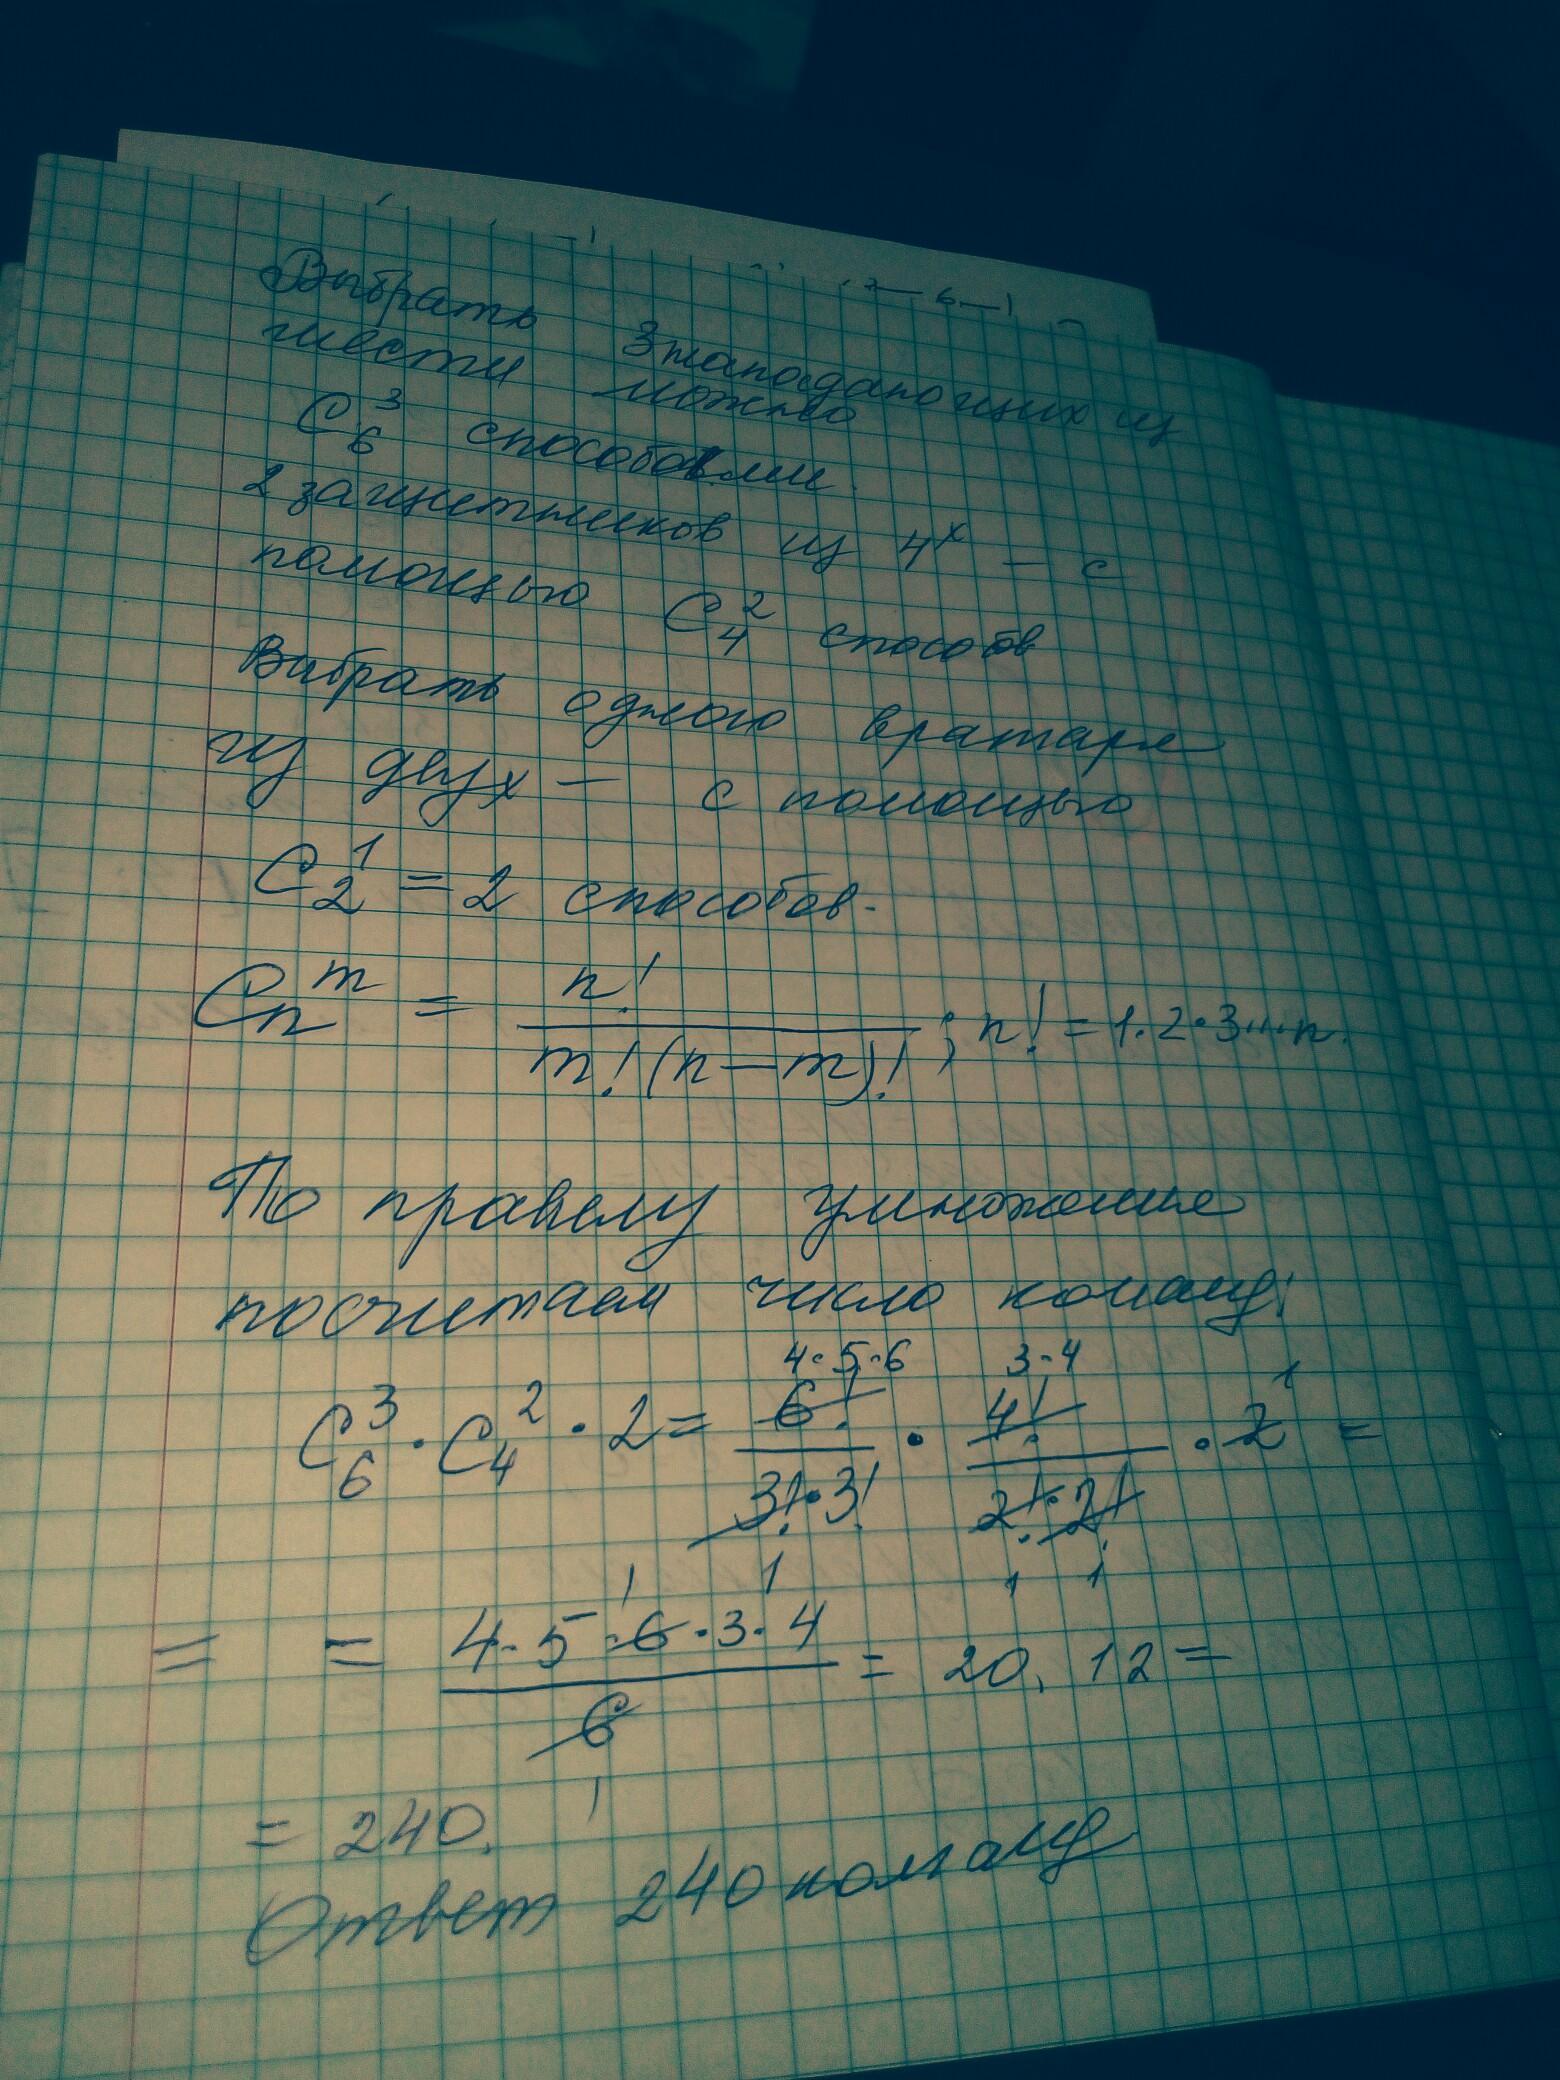 Выбрать 3 нападающих из
шести можно
C₆³ способами.
2 защитников из 4х – с
помощью C₄² способв
Выбрать одного вратаря
из двух – с помощью
C₂¹ = 2 способов.
Cₙᵐ = n! / m!(n–m)! ; n! = 1·2·3···n.
По правилу умножения
посчитаем число команд:
4·5·6 3·4 1
C₆³ · C₄² · 2 = 6! / 3!·3! · 4! / 2!·2! · 2 =
1 1 1
= = 4·5·6·3·4 / 6 = 20.12 =
= 240.
Ответ 240 команд